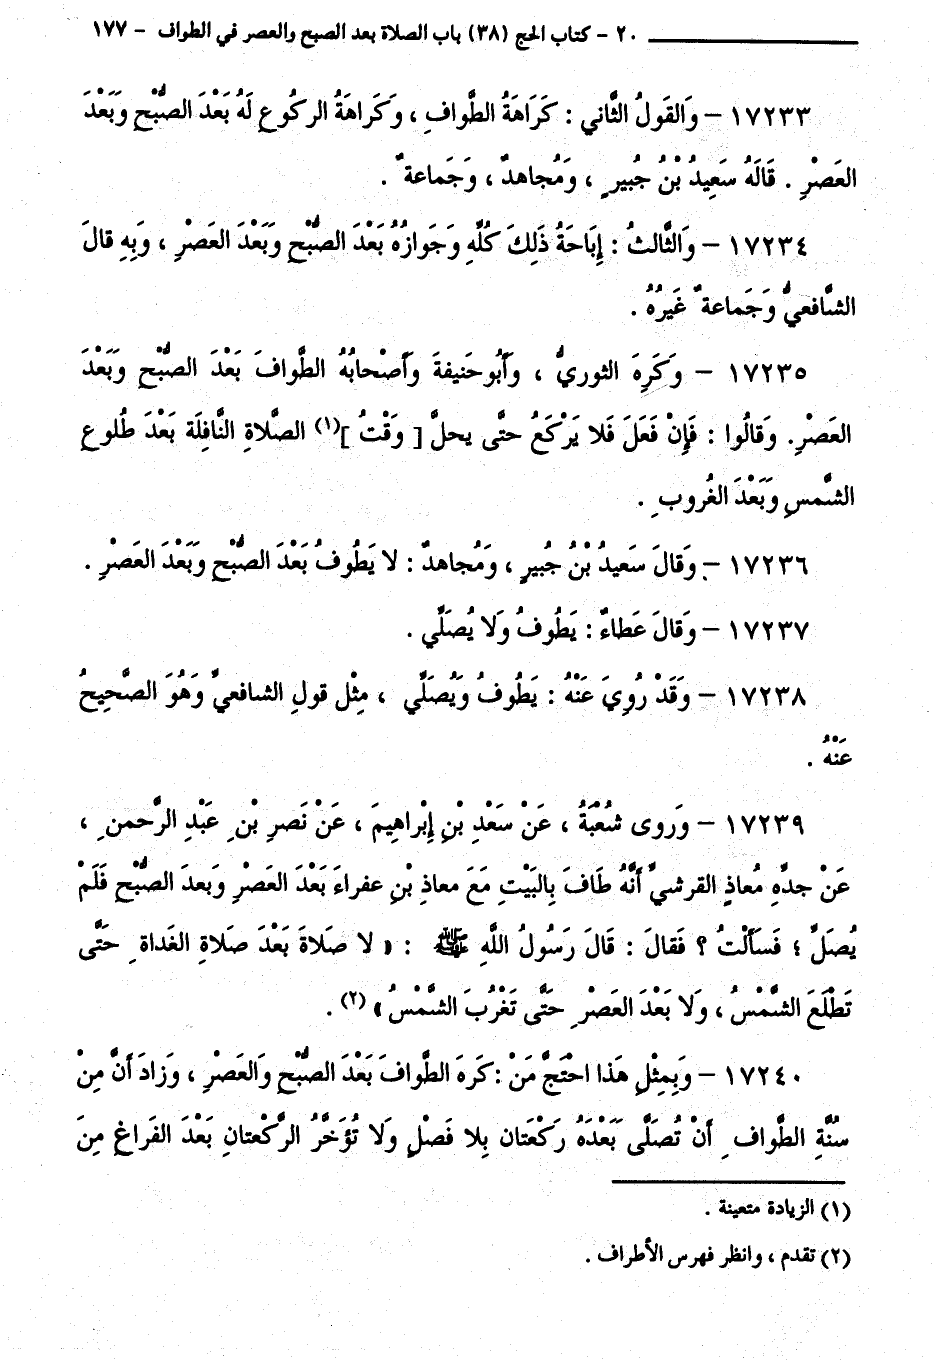 ٢٠ - كتاب الحج (٣٨) باب الصلاة بعد الصبح والعصر في الطواف - ١٧٧
١٧٢٣٣ - وَالقَولُ الثَّاني : كَرَاهَةُ الطَّوافِ ، وَكَرَاهَةُ الركُوعِ لَهُ بَعْدَ الصُّبْحِ وَبَعْدَ
العَصْرِ . قَالَهُ سَعِيدُ بْنُ جُبيرٍ ، وَمُجاهدٌ ، وَجَماعةٌ .
١٧٢٣٤ - وَالثَّالثُ : إِبَاحَةُ ذَلِكَ كُلِّهِ وَجَوازُهُ بَعْدَ الصُّبْحِ وَبَعْدَ العَصْرِ ، وَبِهِ قالَ
الشَّافعيُّ وَجَماعةٌ غَيرُهُ .
١٧٢٣٥ - وَكَرِهَ الثوريُّ ، وَأَبُو حَنيفةَ وَأَصْحابُهُ الطَّوافَ بَعْدَ الصُّبْحِ وَبَعْدَ
العَصْرِ. وَقَالُوا : فَإِنْ فَعَلَ فَلا يَرْكَعُ حتَّى يحلَّ [ وَقْتُ ](١) الصَّلاةِ النَّافِلَة بَعْدَ طُلوعِ
الشَّمسِ وَبَعْدَ الغُروبِ .
١٧٢٣٦ - وَقالَ سَعيدُ بْنُ جُبيرٍ ، وَمُجاهدٌ : لا يَطُوفُ بَعْدَ الصُّبْحِ وَبَعْدَ العَصْرِ .
١٧٢٣٧ - وَقالَ عَطاءٌ : يَطُوفُ وَلا يُصَلِّي .
١٧٢٣٨ - وَقَدْ رُوِيَ عَنْهُ : يَطُوفُ وَيُصَلِّي ، مِثْل قولِ الشافعيِّ وَهُوَ الصَّحِيحُ
عَنْهُ .
١٧٢٣٩ - وَروى شُعْبَةُ ، عَنْ سَعْدِ بْنِ إِبْراهِيمَ ، عَنْ نَصرِ بْنِ عَبْدِ الرَّحمنِ ،
عَنْ جدِّهِ مُعاذٍ القرشيِّ أَنَّهُ طَافَ بِالبَيْتِ مَعَ معاذِ بْنِ عفراءَ بَعْدَ العَصْرِ وَبعدَ الصُّبْحِ فَلَمْ
يُصَلِّ ؛ فَسَأَلْتُ ؟ فَقالَ : قَالَ رَسُولُ اللَّهِ ﷺ : « لا صَلاةَ بَعْدَ صَلاةِ الغَداةِ حَتَّى
تَطْلَعَ الشَّمْسُ ، وَلا بَعْدَ العَصْرِ حَتَّى تَغْرُبَ الشَّمْسُ » (٢) .
١٧٢٤٠ - وَبِمِثْلِ هَذا احْتَجَّ مَنْ :كَرِهَ الطَّوافَ بَعْدَ الصُّبْحِ وَالعَصْرِ ، وَزادَ أَنَّ مِنْ
سُنَّةِ الطَّوافِ أَنْ تُصَلَّى بَعْدَهُ رَكْعَتان بِلا فَصْلٍ وَلا تُؤَخَّرُ الرَّكْعتانِ بَعْدَ الفَراغِ مِنَ
(١) الزيادة متعينة .
(٢) تقدم ، وانظر فهرس الأطراف .